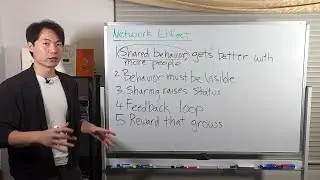 Network Effect
1. Shared behavior gets better with
more people
2. Behavior must be visible
3. Sharing raises status
4. Feedback loop
5. Reward that grows